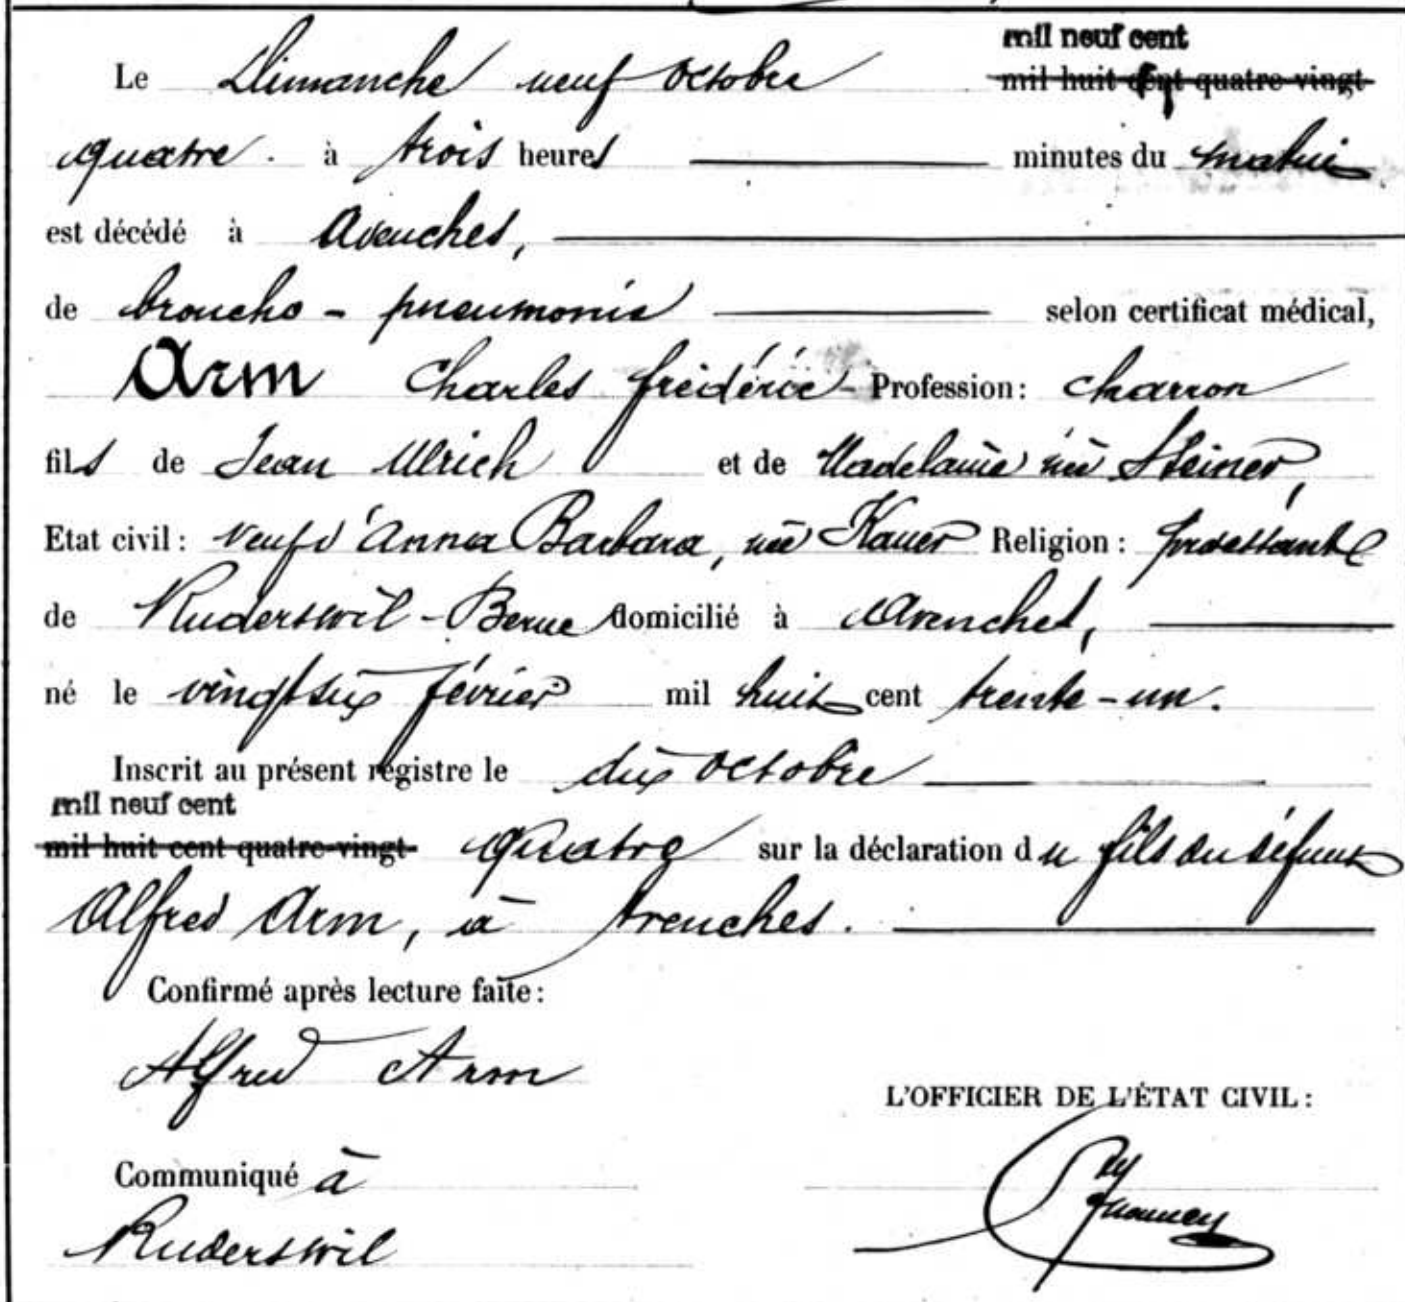 mil neuf cent
Le Dimanche neuf octobre mil huit cent quatre-vingt
quatre. à trois heures minutes du matin
est décédé à Avenches,
de broncho-pneumonie selon certificat médical,
Arm Charles frédéric Profession: charron
fils de Jean Ulrich et de Madelaine née Steiner,
Etat civil: veuf d'Anna Barbara, née Kauer Religion: protestante
de Ruderswil-Berne domicilié à Avenches,
né le vingt six février mil huit cent trente-un.
Inscrit au présent registre le dix octobre
mil neuf cent
mil huit cent quatre-vingt quatre sur la déclaration du fils du défunt
Alfred Arm, à Avenches.
Confirmé après lecture faite:
Alfred Arm
L'OFFICIER DE L'ÉTAT CIVIL:
Communiqué à
Ruderswil